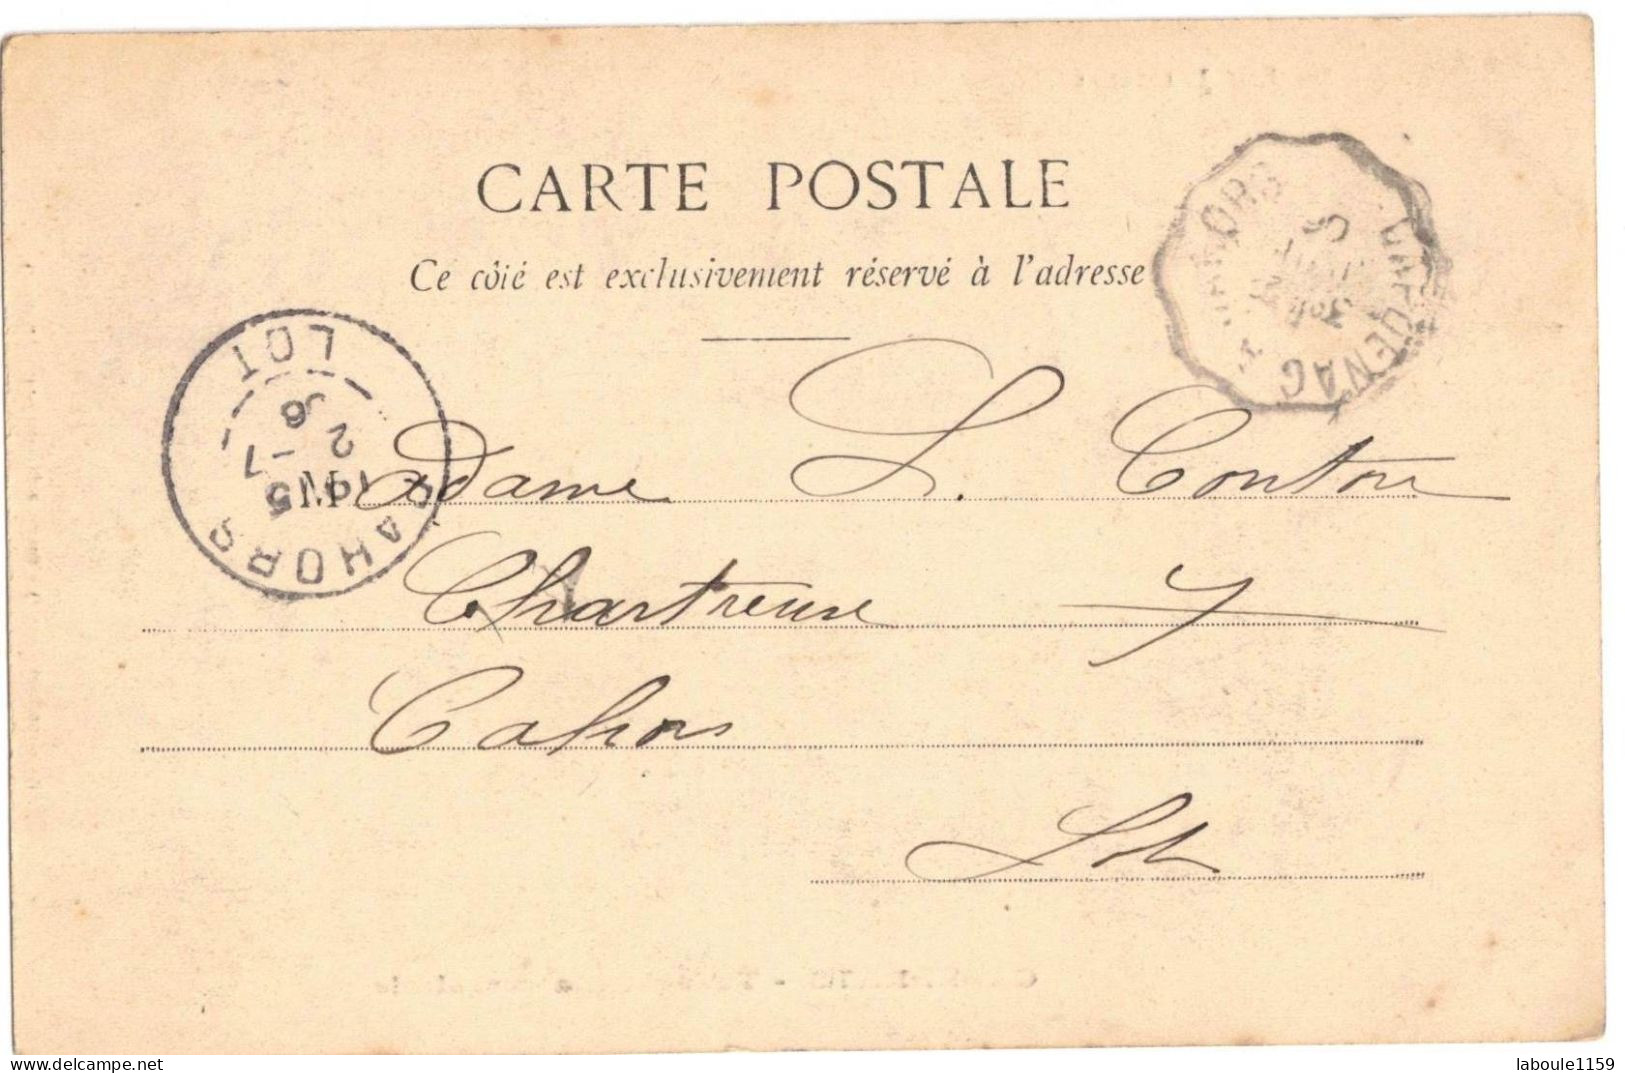 CARTE POSTALE
Ce côté est exclusivement réservé à l'adresse
CAHORS
LOT
15
7 - 2
06
CAHORS
CAPDENAC
Madame L. Contou
Chartreuse
Cahors
Lot
www.delcampe.net
laboule1159